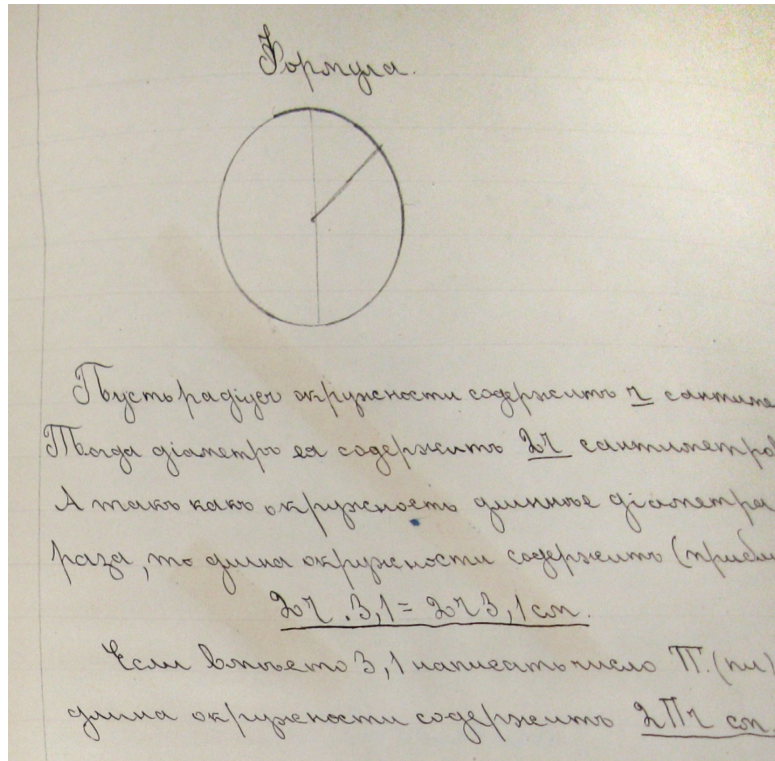 Формула.
Пусть радіусъ окружности содержитъ r сантиме
Тогда діаметръ ея содержитъ 2r сантиметров
А такъ какъ окружность длиннѣе діаметра
раза, то длина окружности содержитъ (прибли
2r . 3,1 = 2r3,1 см.
Если вмѣсто 3,1 написать число П. (пи)
длина окружности содержитъ 2Пr см.